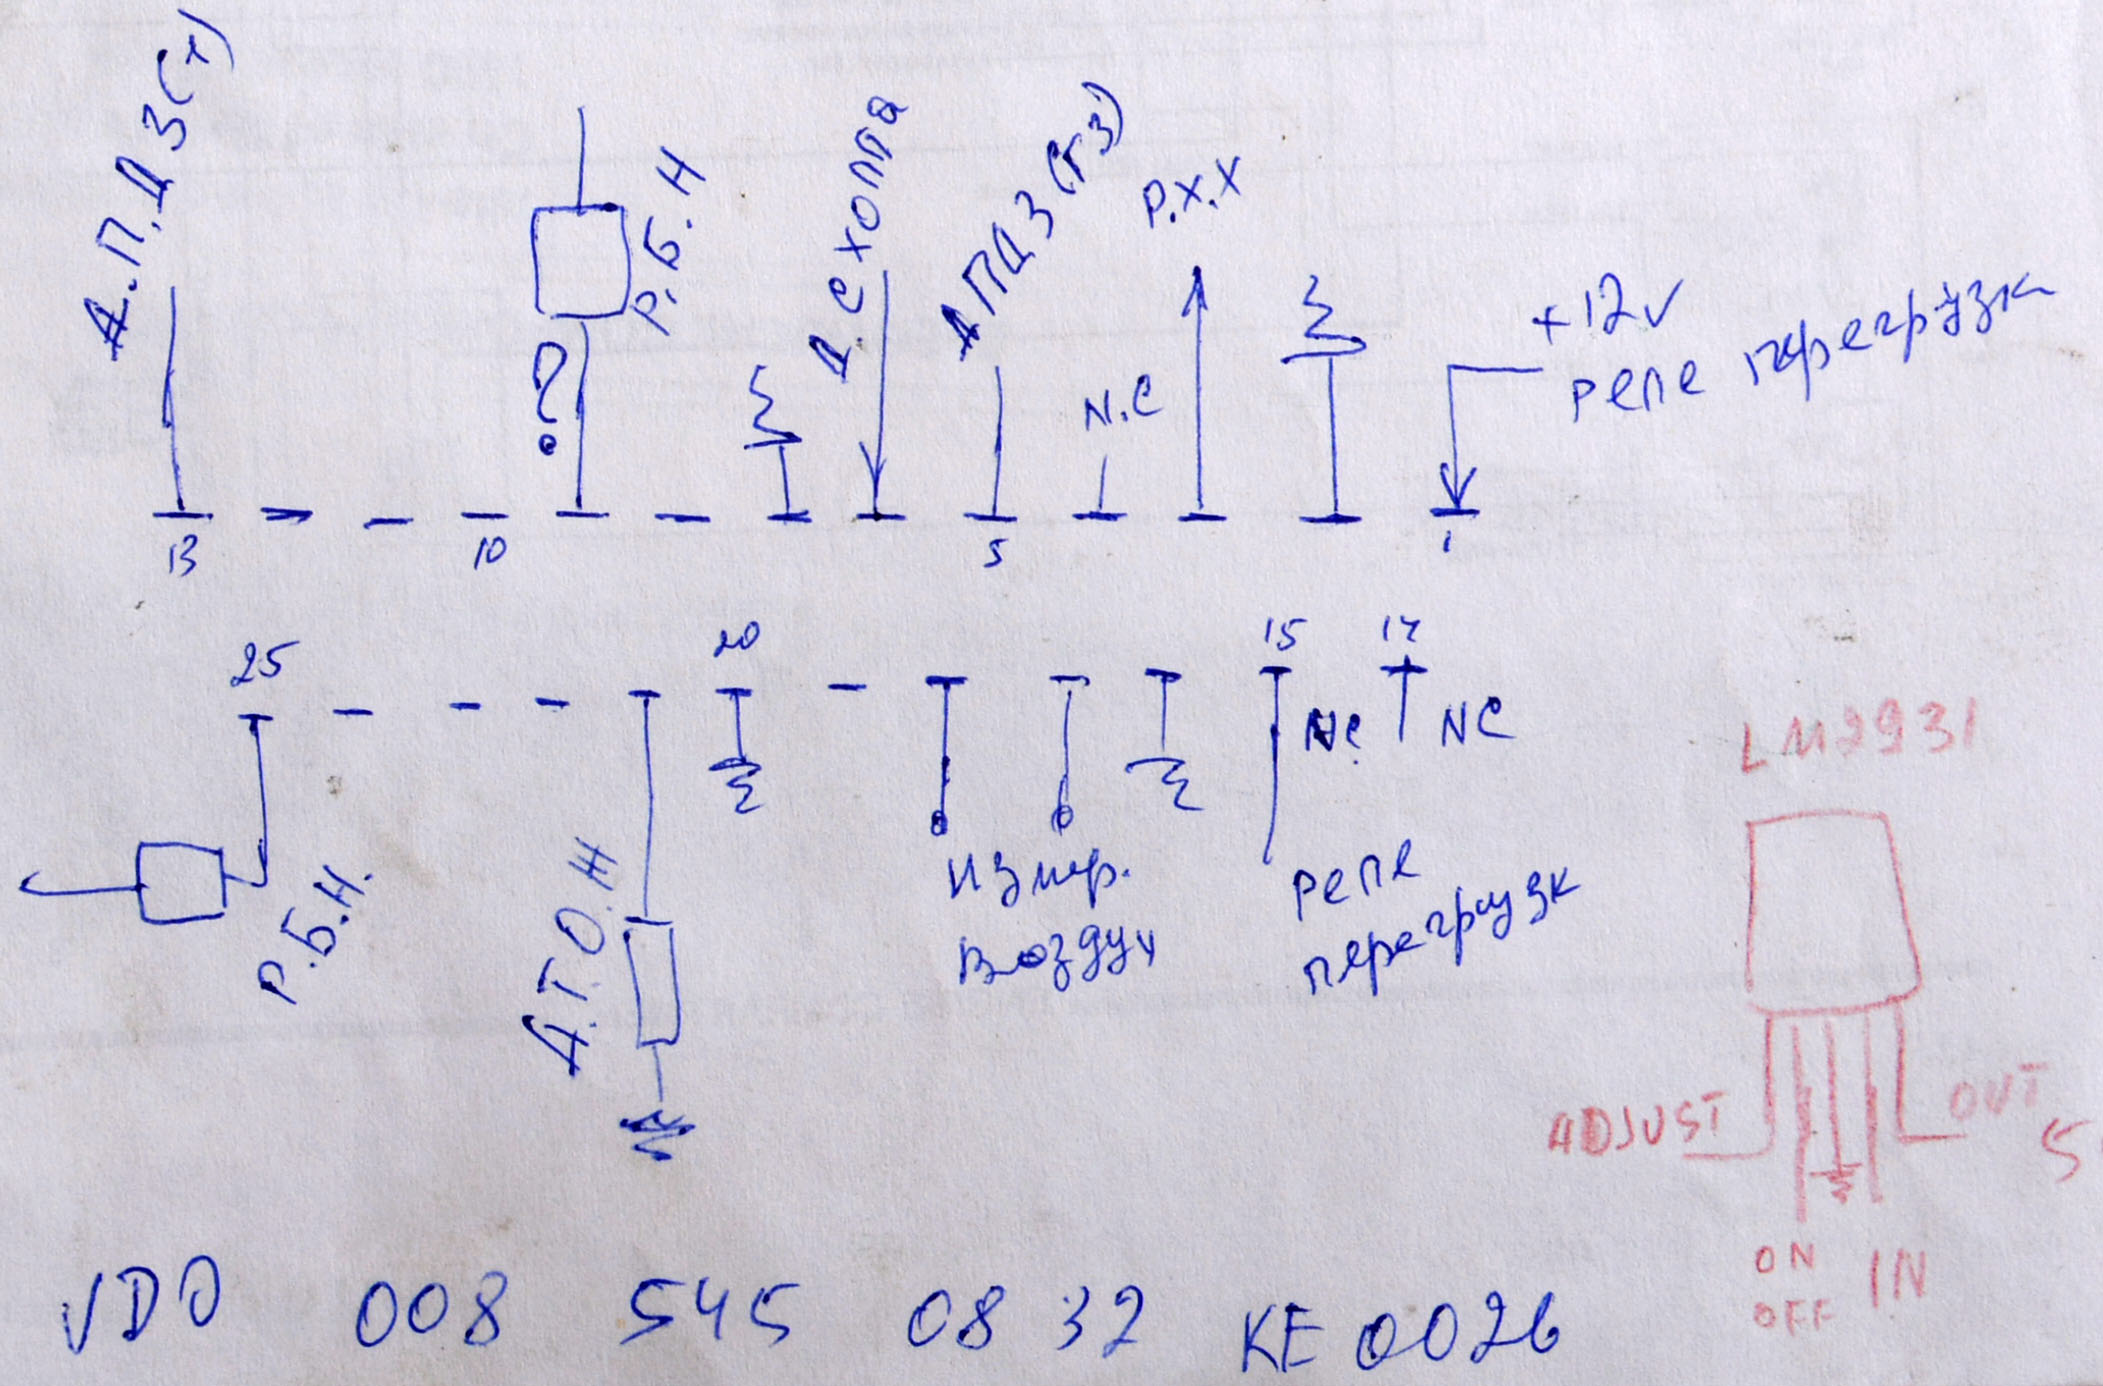 Д.П.Д.З(+)
Р.Б.Н
?
Д. с холла
ДПДЗ(гз)
N.C
Р.Х.Х
+12v
реле перегрузк
13
10
5
1
25
20
15
14
NC
NC
Р.Б.Н.
Д.Т.О.Ж
Измер.
Воздух
реле
перегрузк
LM2931
ADJUST
OUT
5
ON
OFF
IN
VDO 008 545 08 32 KE 0026